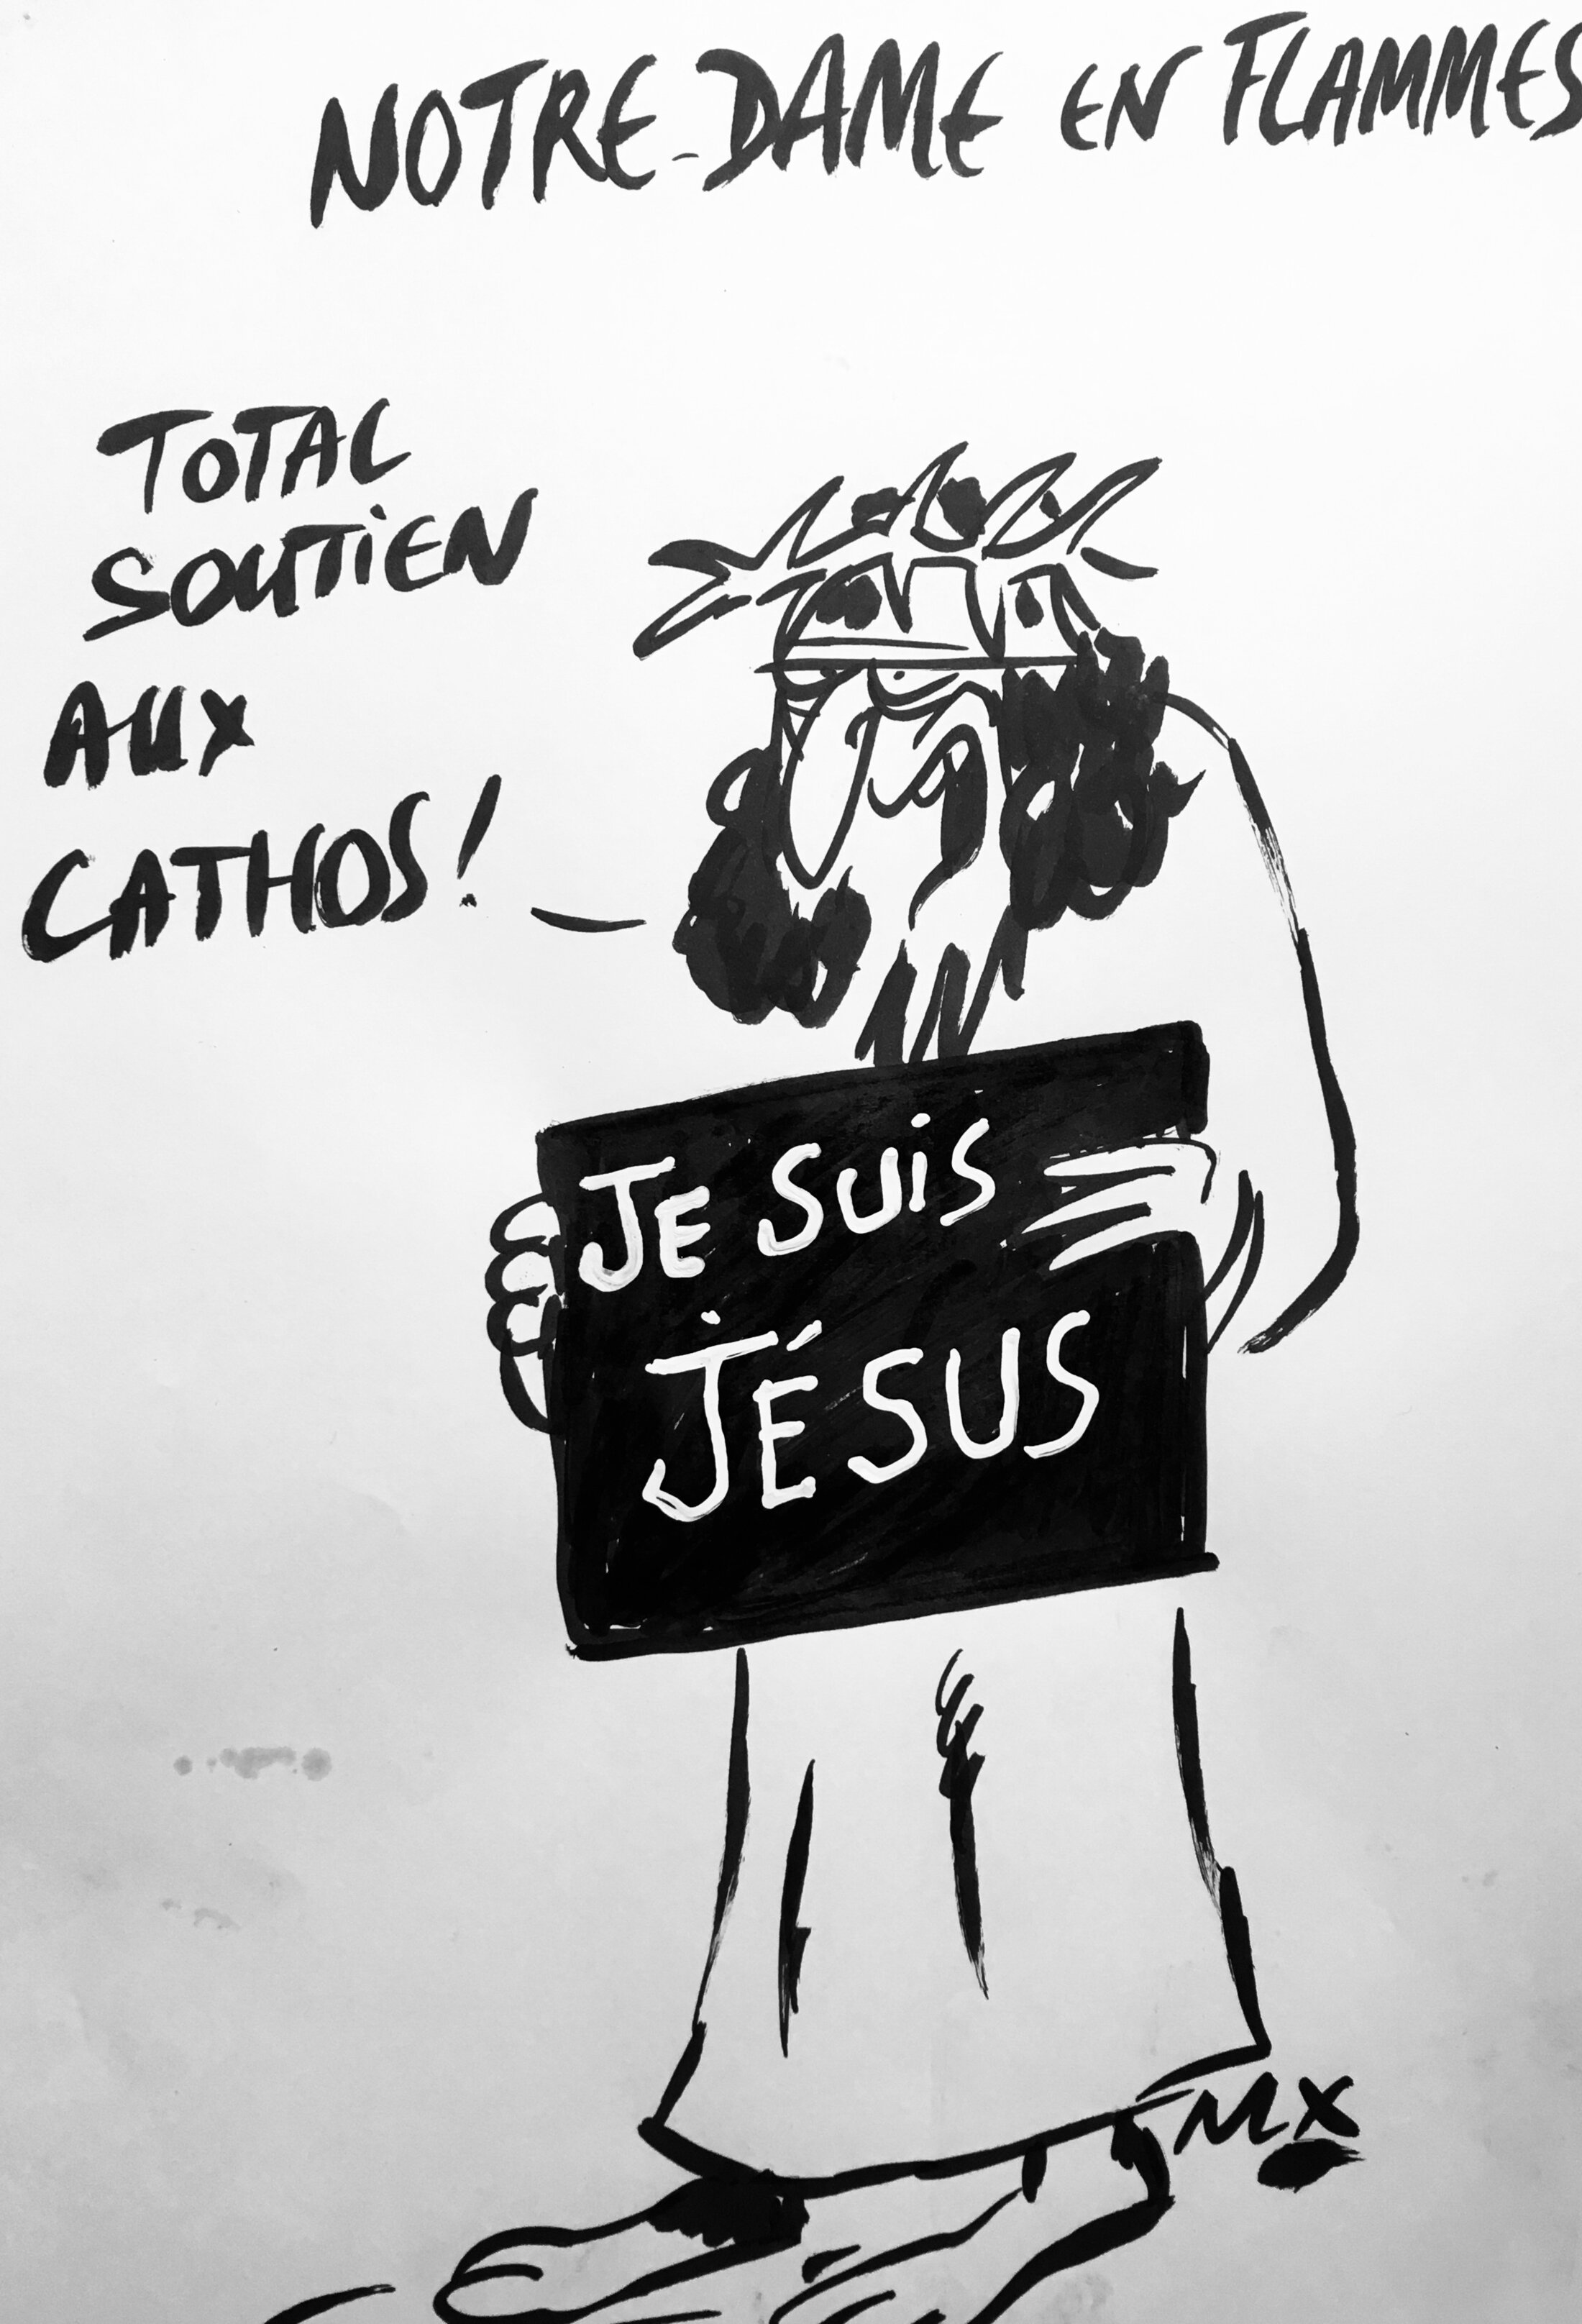 NOTRE-DAME EN FLAMMES
TOTAL
SOUTIEN
AUX
CATHOS!
JE SUIS
JÉSUS
MX